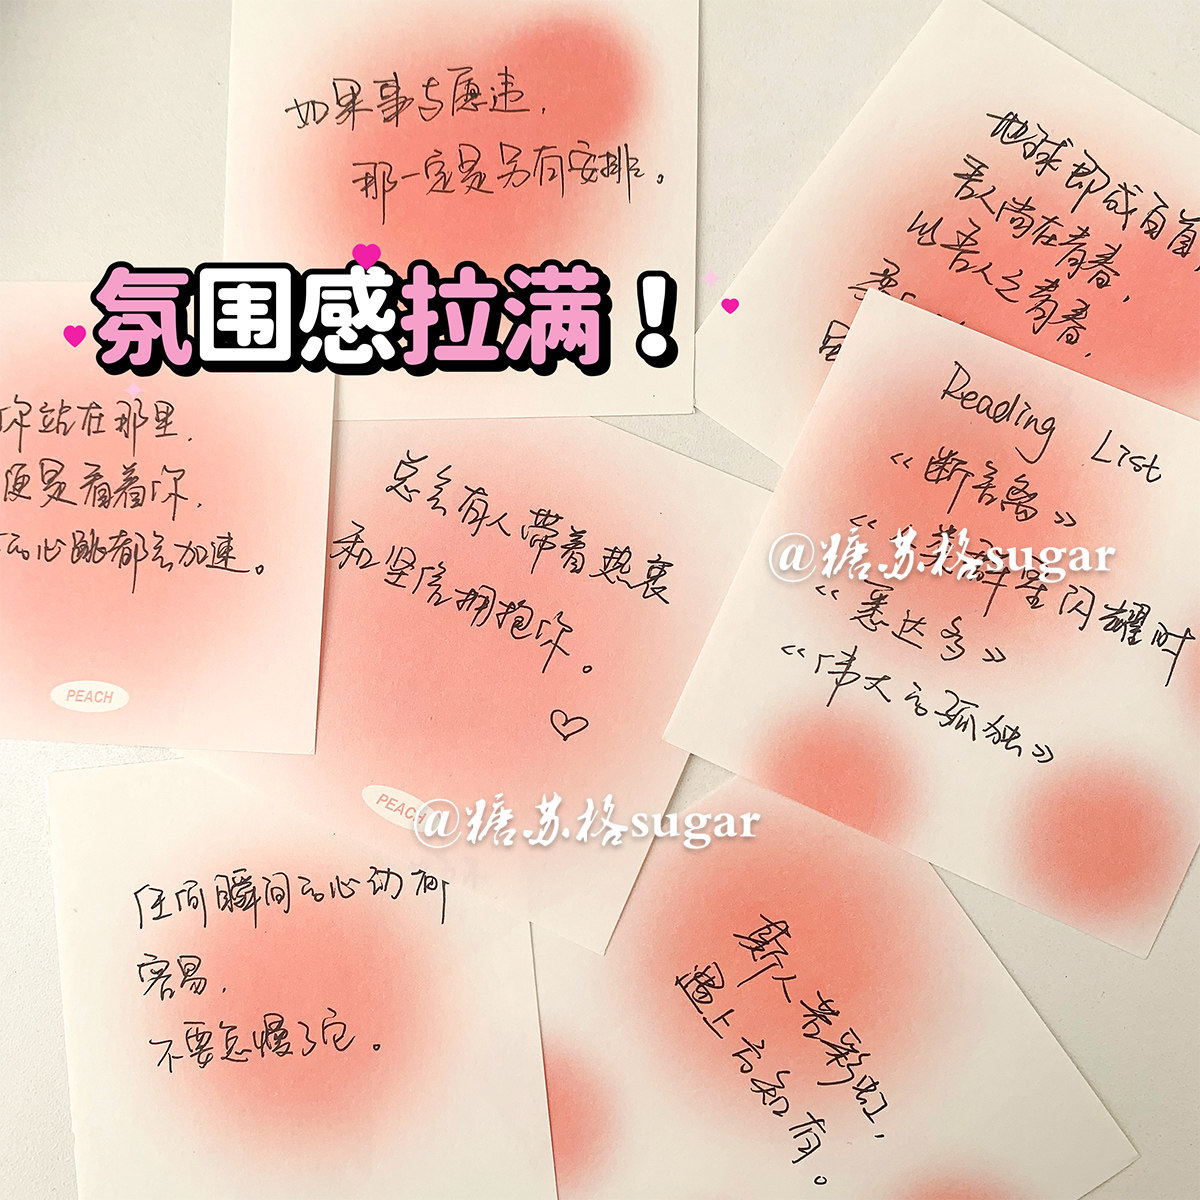 如果事与愿违，
那一定是另有安排。
地球即成白首，
吾人尚在青春，
以吾人之青春，
氛围感拉满！
你站在那里，
便是看着你，
心跳都会加速。
PEACH
总会有人带着热衷
和坚信拥抱你。
PEACH
Reading List
《断舍离》
星闪耀时
《悉达多》
《伟大的孤独》
@糖苏格sugar
@糖苏格sugar
任何瞬间的心动都
容易，
不要怠慢了它。
斯人若彩虹，
遇上方知有。